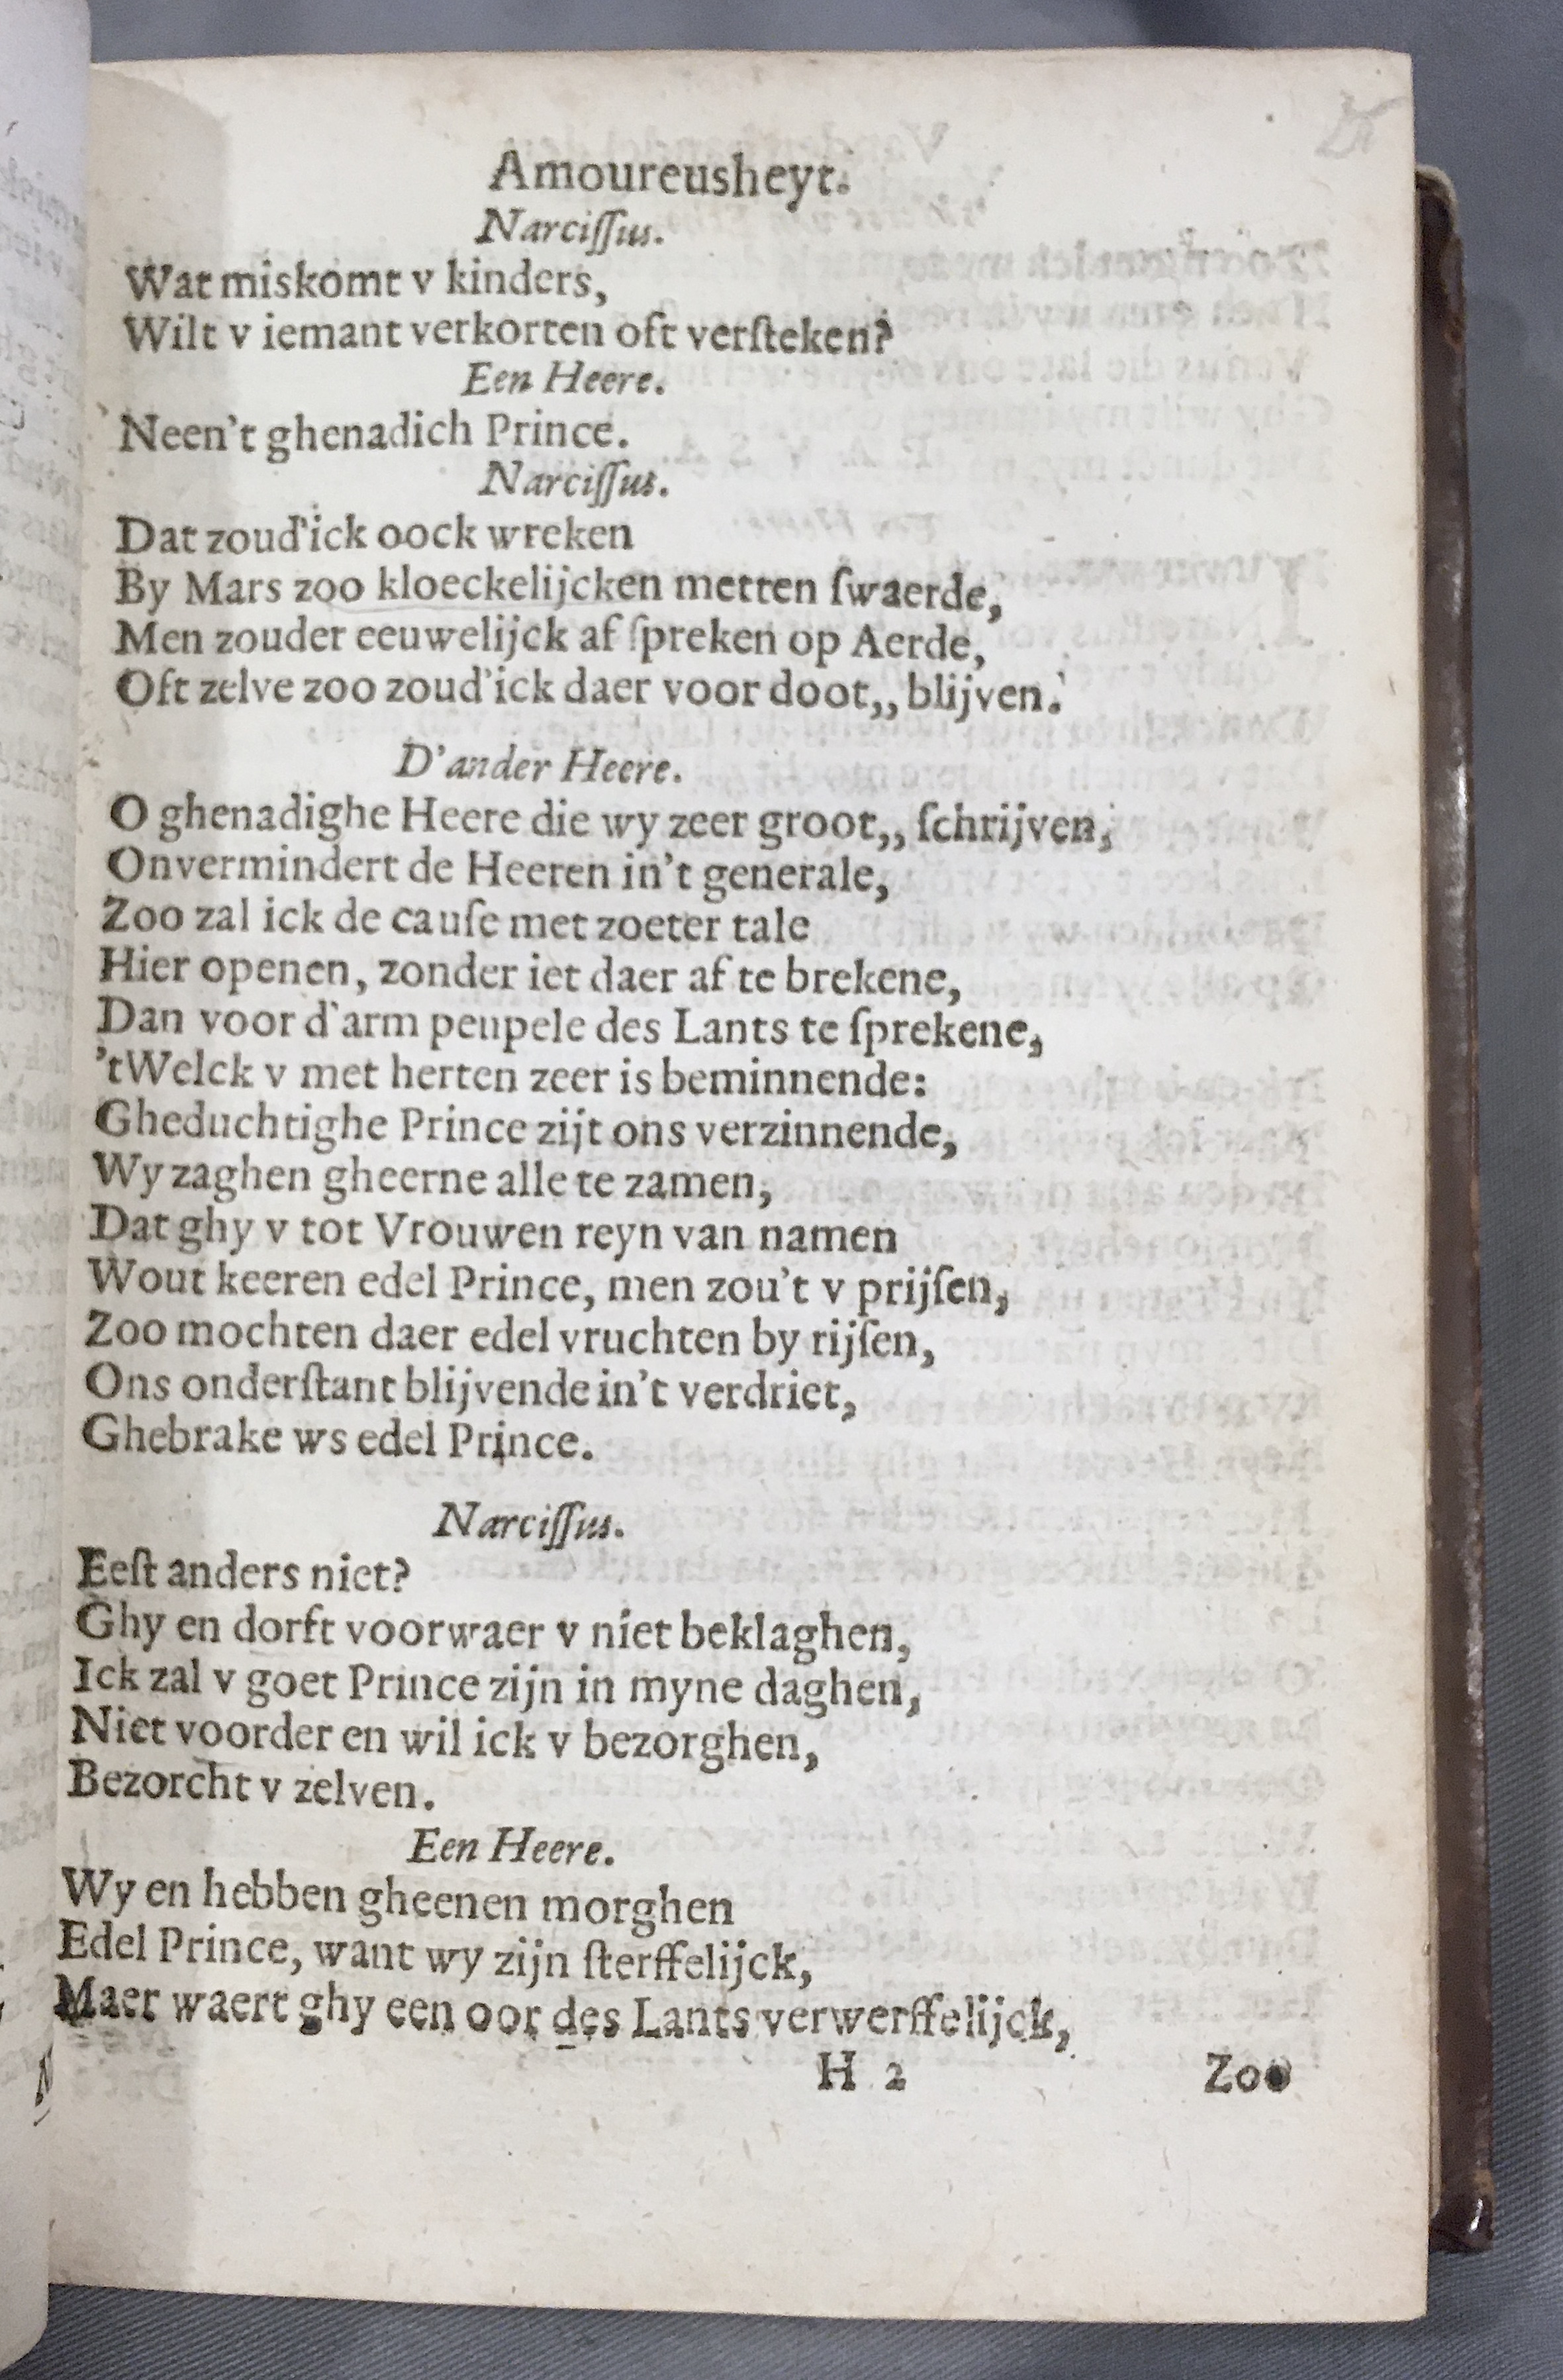 Amoureusheyt.
Narciſſus.
Wat miskomt v kinders,
Wilt v iemant verkorten oft verſteken?
Een Heere.
Neen't ghenadich Prince.
Narciſſus.
Dat zoud'ick oock wreken
By Mars zoo kloeckelijcken metten ſwaerde,
Men zouder eeuwelijck af ſpreken op Aerde,
Oft zelve zoo zoud'ick daer voor doot,, blijven.
D'ander Heere.
O ghenadighe Heere die wy zeer groot,, ſchrijven,
Onvermindert de Heeren in't generale,
Zoo zal ick de cauſe met zoeter tale
Hier openen, zonder iet daer af te brekene,
Dan voor d'arm peupele des Lants te ſprekene,
'tWelck v met herten zeer is beminnende:
Gheduchtighe Prince zijt ons verzinnende,
Wy zaghen gheerne alle te zamen,
Dat ghy v tot Vrouwen reyn van namen
Wout keeren edel Prince, men zou't v prijſen,
Zoo mochten daer edel vruchten by rijſen,
Ons onderſtant blijvende in't verdriet,
Ghebrake ws edel Prince.
Narciſſus.
Eeſt anders niet?
Ghy en dorft voorwaer v niet beklaghen,
Ick zal v goet Prince zijn in myne daghen,
Niet voorder en wil ick v bezorghen,
Bezorcht v zelven.
Een Heere.
Wy en hebben gheenen morghen
Edel Prince, want wy zijn ſterffelijck,
Maer waert ghy een oor des Lants verwerffelijck,
H 2 Zoo